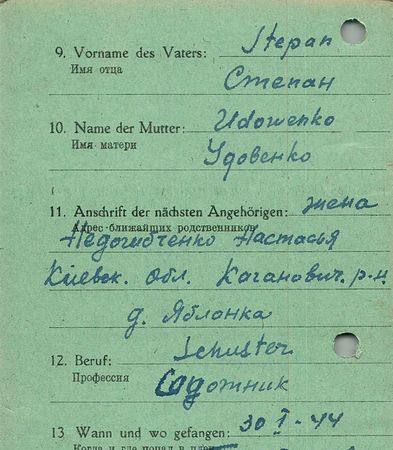 9. Vorname des Vaters: Stepan
Имя отца
Степан
10. Name der Mutter: Udowenko
Имя матери
Удовенко
11. Anschrift der nächsten Angehörigen: жена
Адрес ближайших родственников
Настасья
Киевск. обл. Каганович. р-н.
д. Яблонка
12. Beruf: Schuster
Профессия
Сапожник
13 Wann und wo gefangen: 30 I - 44
Когда и где попал в плен